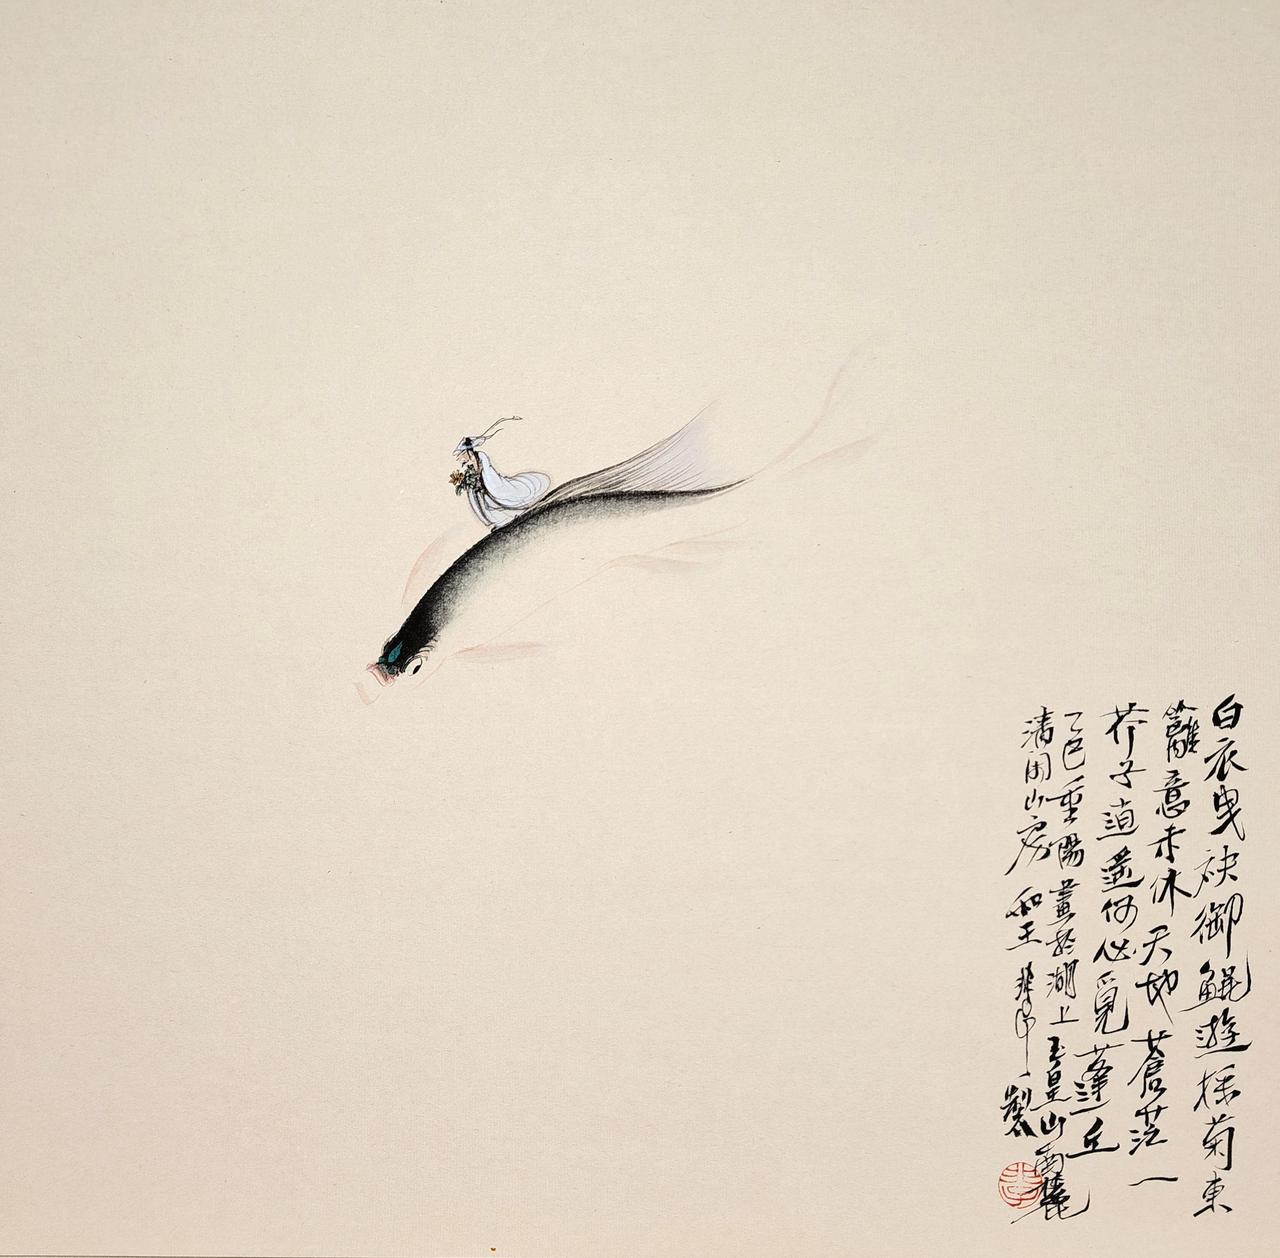 白衣曳袂御鯤遊採菊東
籬意未休天地蒼茫一
芥子逍遙何必覓蓬丘
乙巳重陽畫於湖上玉皇山南麓
清閑山房 和王 製